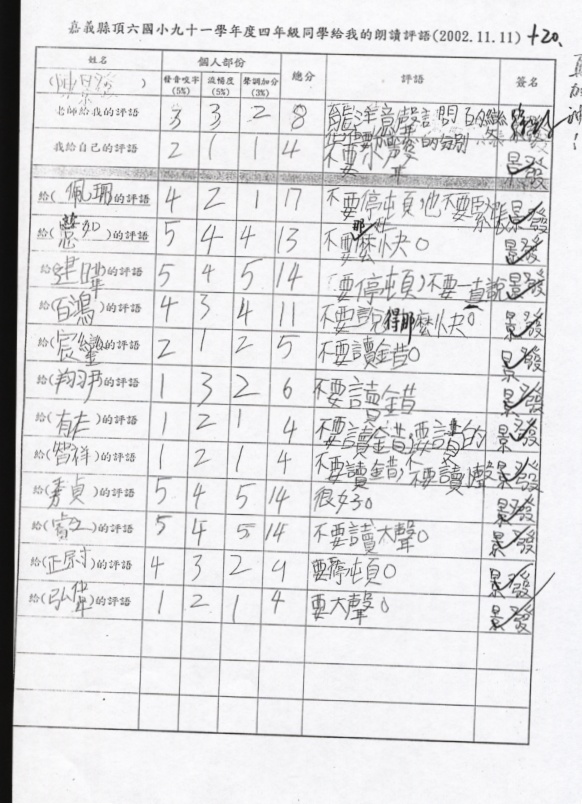 嘉義縣頂六國小九十一學年度四年級同學給我的朗讀評語(2002.11.11) +20.
姓名 個人部份 總分 評語 簽名
發音咬字(5%) 流暢度(5%) 聲調加分(3%)
老師給我的評語 3 3 2 8
我給自己的評語 2 1 1 4 不要小聲 景發
給(佩珊)的評語 4 2 1 17 不要停屯頁也不要緊張 景發
給(慧如)的評語 5 4 4 13 不要那麼快。 景發
給 的評語 5 4 5 14 要停屯頁,不要一直說 景發
給(百鴻)的評語 4 3 4 11 不要說得那麼快。 景發
給(宸鑾)的評語 2 1 2 5 不要讀錯。 景發
給(翔尹)的評語 1 3 2 6 不要讀錯 景發
給(有左)的評語 1 2 1 4 不要讀錯,要讀 的 景發
給(智祥)的評語 1 2 1 4 不要讀錯,不要讀小聲 景發
給(秀貞)的評語 5 4 5 14 很好。 景發
給 的評語 5 4 5 14 不要讀大聲。 景發
給(正尉)的評語 4 3 2 9 要停屯頁。 景發
給(弘偉)的評語 1 2 1 4 要大聲。 景發